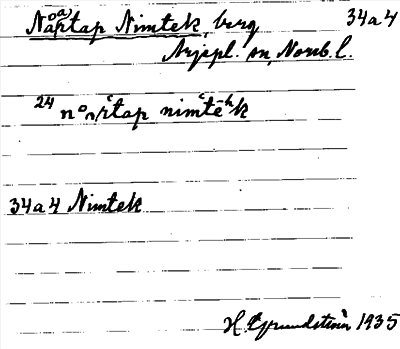 Nåptap Nimtek, berg 34a4
Arjepl. sn, Norrb. l.
24 nimtēʰk
34a4 Nimtek
H. Grundström 1935